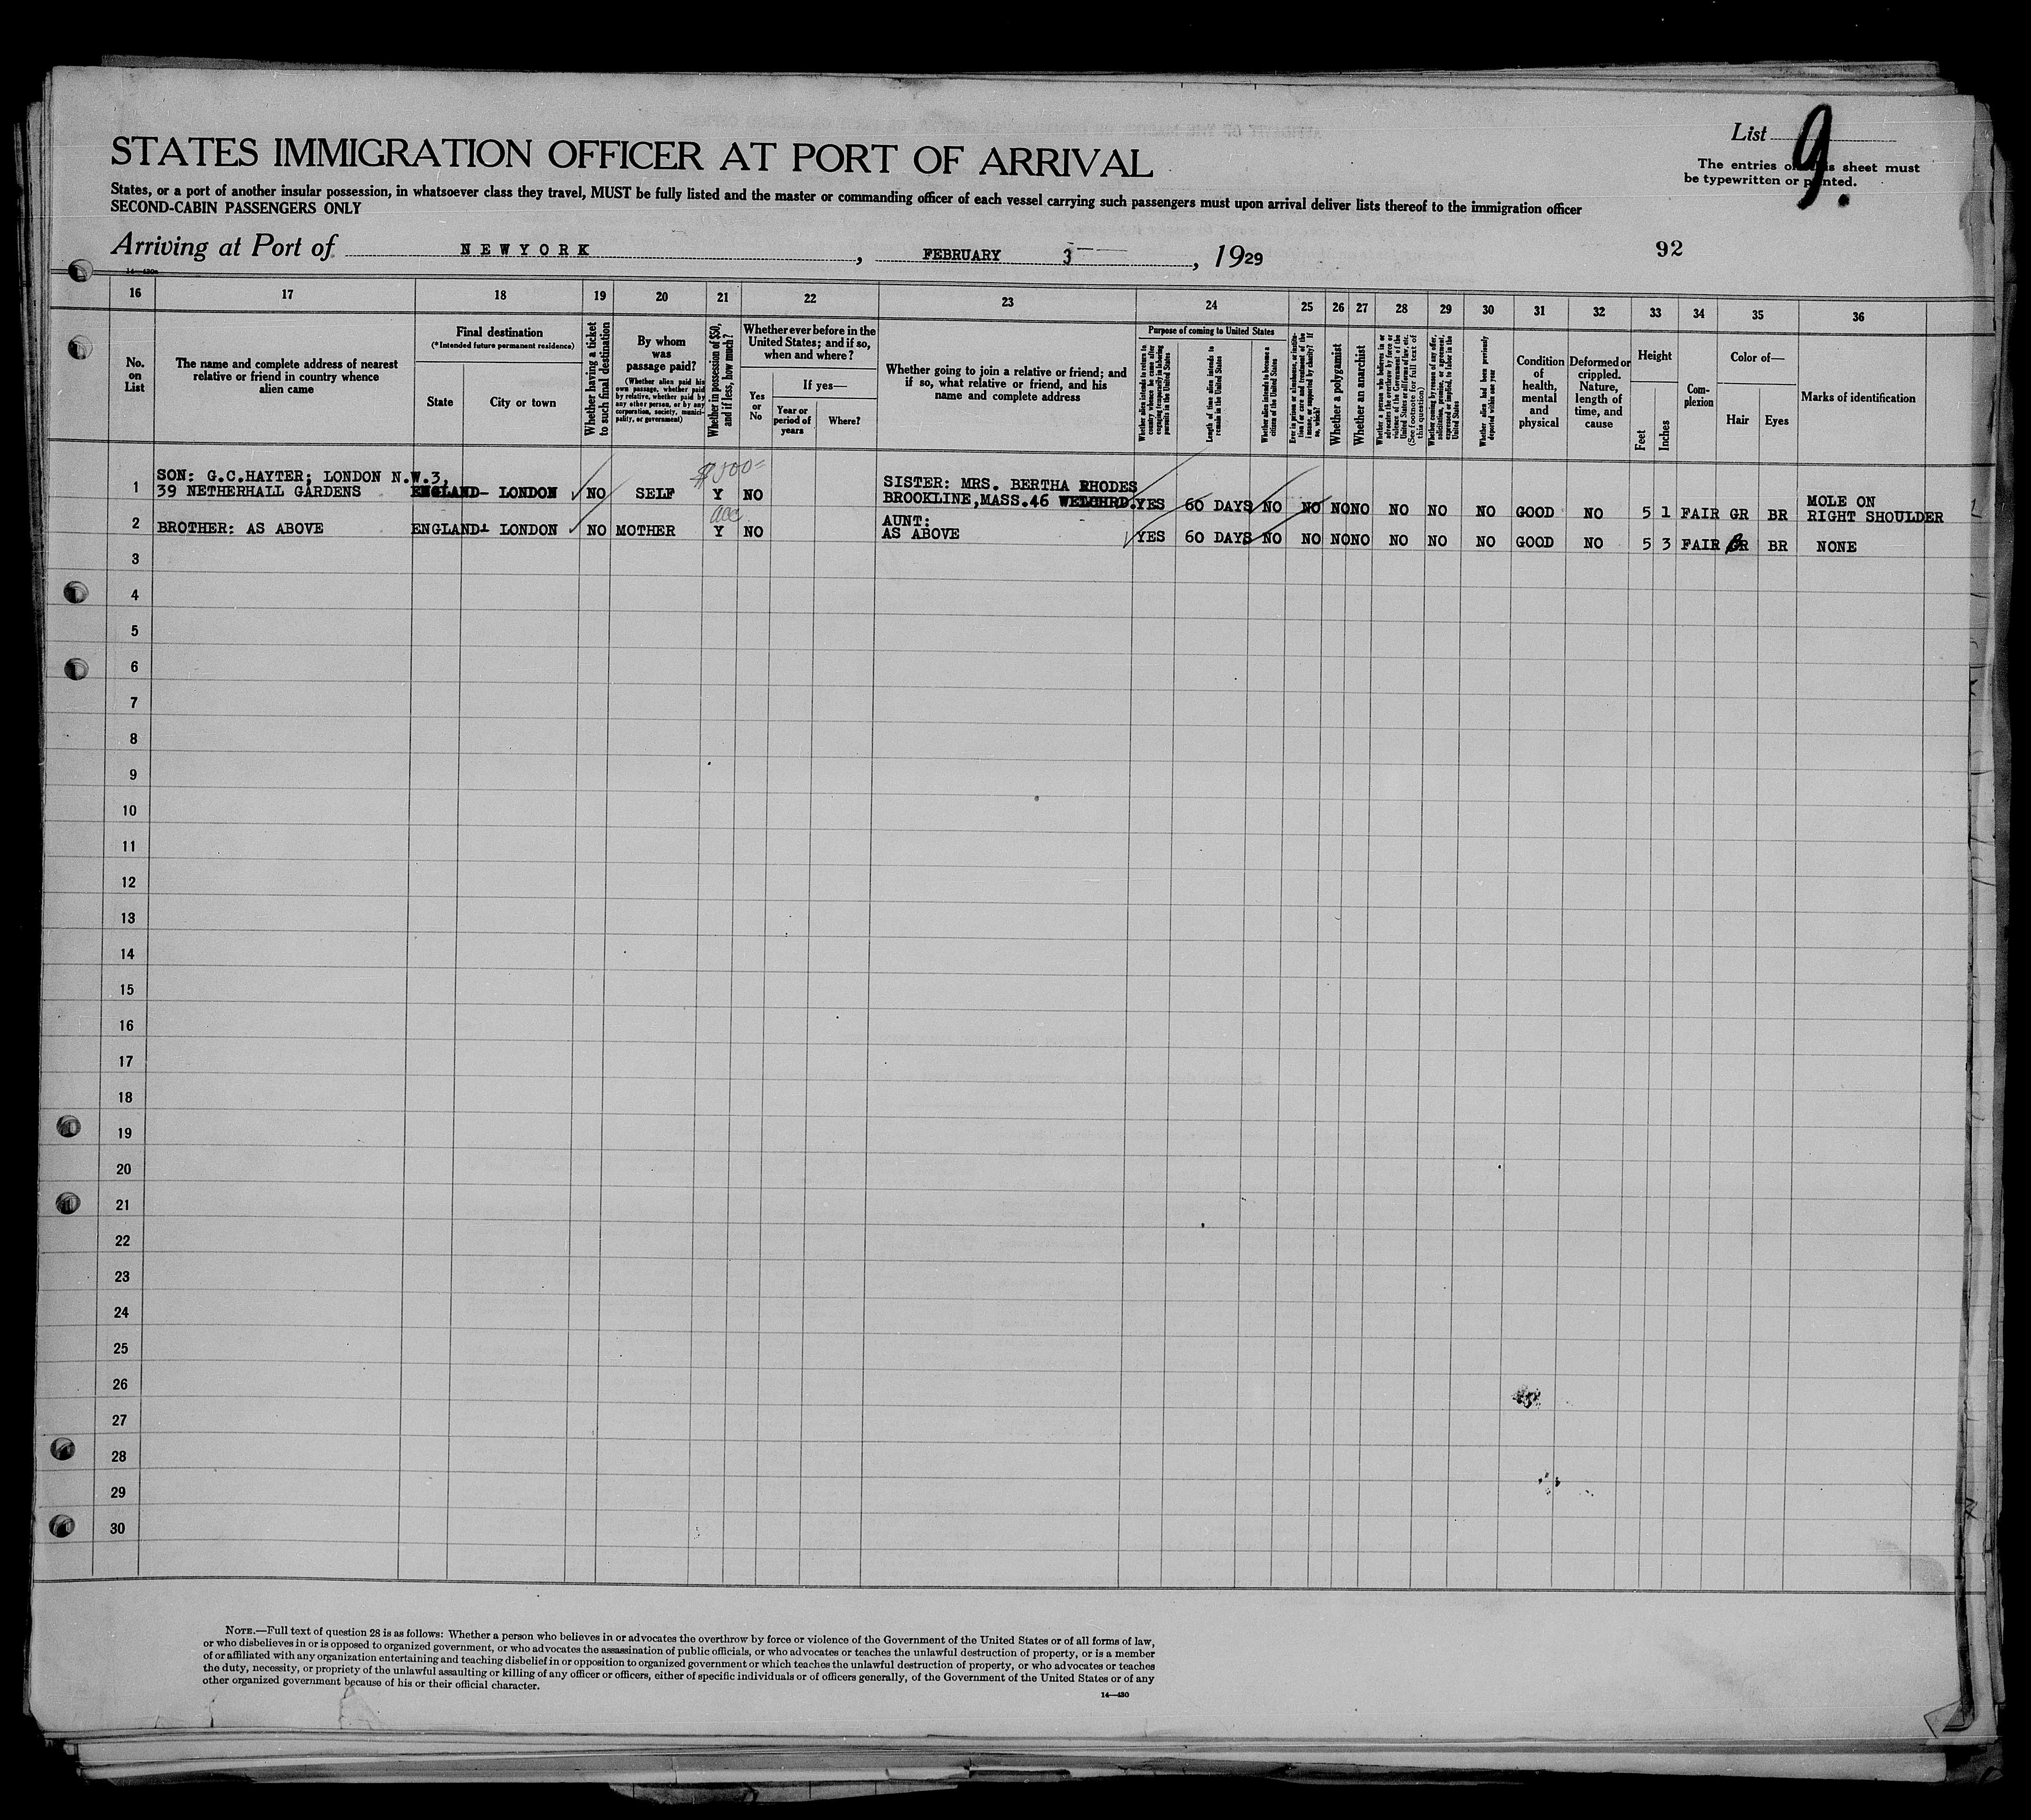 List 9.
STATES IMMIGRATION OFFICER AT PORT OF ARRIVAL
The entries on this sheet must
be typewritten or printed.
States, or a port of another insular possession, in whatsoever class they travel, MUST be fully listed and the master or commanding officer of each vessel carrying such passengers must upon arrival deliver lists thereof to the immigration officer
SECOND-CABIN PASSENGERS ONLY
Arriving at Port of NEWYORK, FEBRUARY 3, 1929
92
14—430a
16 17 18 19 20 21 22 23 24 25 26 27 28 29 30 31 32 33 34 35 36
No. on List
The name and complete address of nearest relative or friend in country whence alien came
Final destination
(*Intended future permanent residence)
State
City or town
Whether having a ticket to such final destination
By whom was passage paid?
(Whether alien paid his own passage, whether paid by relative, whether paid by any other person, or by any corporation, society, municipality, or government)
Whether in possession of $50, and if less, how much?
Whether ever before in the United States; and if so, when and where?
Yes or No
If yes—
Year or period of years
Where?
Whether going to join a relative or friend; and if so, what relative or friend, and his name and complete address
Purpose of coming to United States
Whether alien intends to return to country whence he came after engaging temporarily in laboring pursuits in the United States
Length of time alien intends to remain in the United States
Whether alien intends to become a citizen of the United States
Ever in prison or almshouse, or institution for care and treatment of the insane, or supported by charity? If so, which?
Whether a polygamist
Whether an anarchist
Whether a person who believes in or advocates the overthrow by force or violence of the Government of the United States or all forms of law, etc. (See footnote for full text of this question)
Whether coming by reason of any offer, solicitation, promise, or agreement, expressed or implied, to labor in the United States
Whether alien had been previously deported within one year
Condition of health, mental and physical
Deformed or crippled. Nature, length of time, and cause
Height
Feet
Inches
Complexion
Color of—
Hair
Eyes
Marks of identification
1 SON: G.C.HAYTER; LONDON N.W.3, $500= SISTER: MRS. BERTHA RHODES MOLE ON
39 NETHERHALL GARDENS ENGLAND- LONDON NO SELF Y NO BROOKLINE,MASS.46 YES 60 DAYS NO NO NO NO NO NO NO GOOD NO 5 1 FAIR GR BR RIGHT SHOULDER
2 BROTHER: AS ABOVE ENGLAND- LONDON NO MOTHER acc Y NO AUNT:
AS ABOVE YES 60 DAYS NO NO NO NO NO NO NO GOOD NO 5 3 FAIR BR BR NONE
3
4
5
6
7
8
9
10
11
12
13
14
15
16
17
18
19
20
21
22
23
24
25
26
27
28
29
30
NOTE.—Full text of question 28 is as follows: Whether a person who believes in or advocates the overthrow by force or violence of the Government of the United States or of all forms of law,
or who disbelieves in or is opposed to organized government, or who advocates the assassination of public officials, or who advocates or teaches the unlawful destruction of property, or is a member
of or affiliated with any organization entertaining and teaching disbelief in or opposition to organized government or which teaches the unlawful destruction of property, or who advocates or teaches
the duty, necessity, or propriety of the unlawful assaulting or killing of any officer or officers, either of specific individuals or of officers generally, of the Government of the United States or of any
other organized government because of his or their official character.
14—430